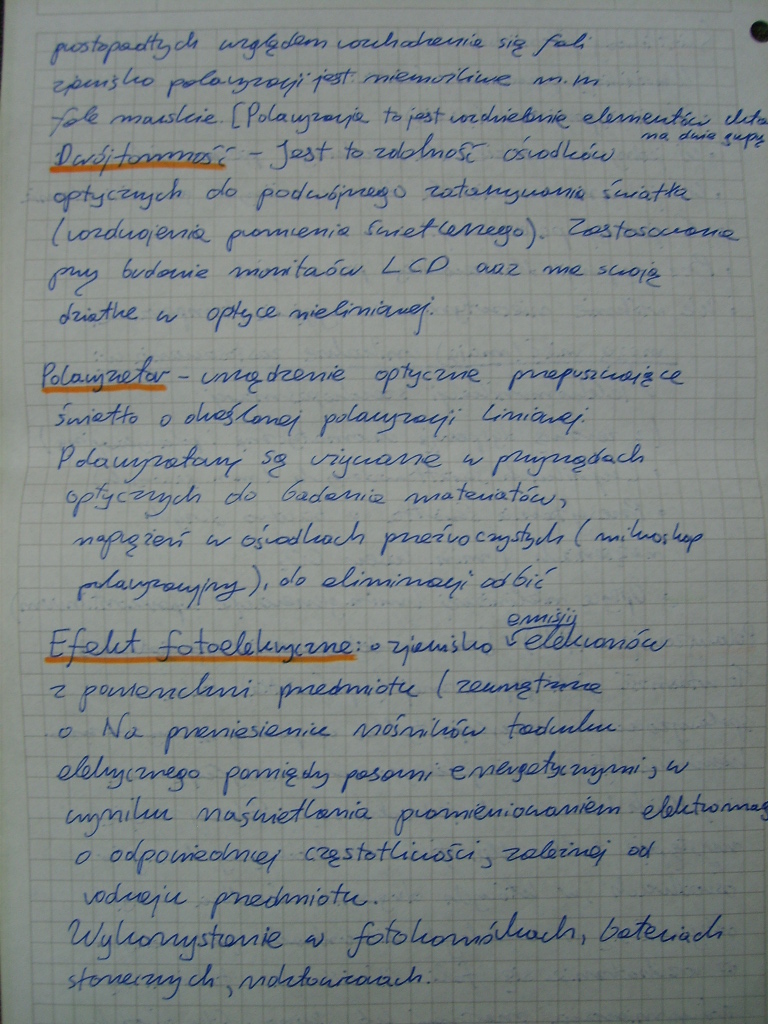 prostopadłych względem rozchodzenia się fali
zjawisko polaryzacji jest niemożliwe m.in
fale morskie. [Polaryzacja to jest rozdzielenie elementów
na dwie grupy
Dwójłomność - Jest to zdolność ośrodków
optycznych do podwójnego załamywania światła
(rozdwojenia promienia świetlanego). Zastosowane
przy budowie monitorów LCD oraz ma swoją
działke w optyce nieliniowej.
Polaryzator - urządzenie optyczne przepuszczające
światło o określonej polaryzacji liniowej.
Polaryzatory są używane w przyrządach
optycznych do badania materiałów,
naprężeń w ośrodkach przeźroczystych (mikroskop
polaryzacyjny), do eliminacji odbić
Efekt fotoelektryczne: o zjawisko emisji elektronów
z powierzchni przedmiotu (zewnętrzne
o Na przeniesieniu nośników ładunku
elektrycznego pomiędzy pasami energetycznymi, w
wyniku naświetlania promieniowaniem elektromag
o odpowiedniej częstotliwości, zależnej od
rodzaju przedmiotu.
Wykorzystanie w fotokomórkach, bateriach
słonecznych, noktowizorach.